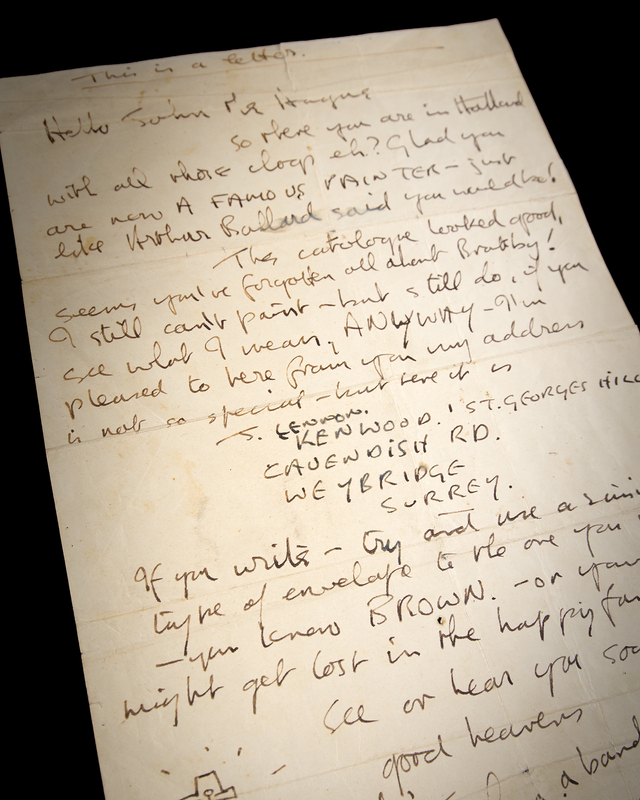 This is a letter.
Hello John
So there you are in Holland
with all those clogs eh? Glad you
are now A FAMOUS PAINTER – just
like Arthur Ballard said you would be!
The catologue looked good,
seems you've forgotten all about Bratby!
I still can't paint – but still do, if you
see what I mean, ANYWAY – I'm
pleased to here from you my address
is not so special – but here it is
J. LENNON.
KENWOOD. ST. GEORGES HILL
CAVENDISH RD.
WEYBRIDGE
SURREY.
If you write – try and use a simi
type of envelope to the one you
– you know BROWN. – or your
might get lost in the happy fan
See or hear you soo
good heavens
a band